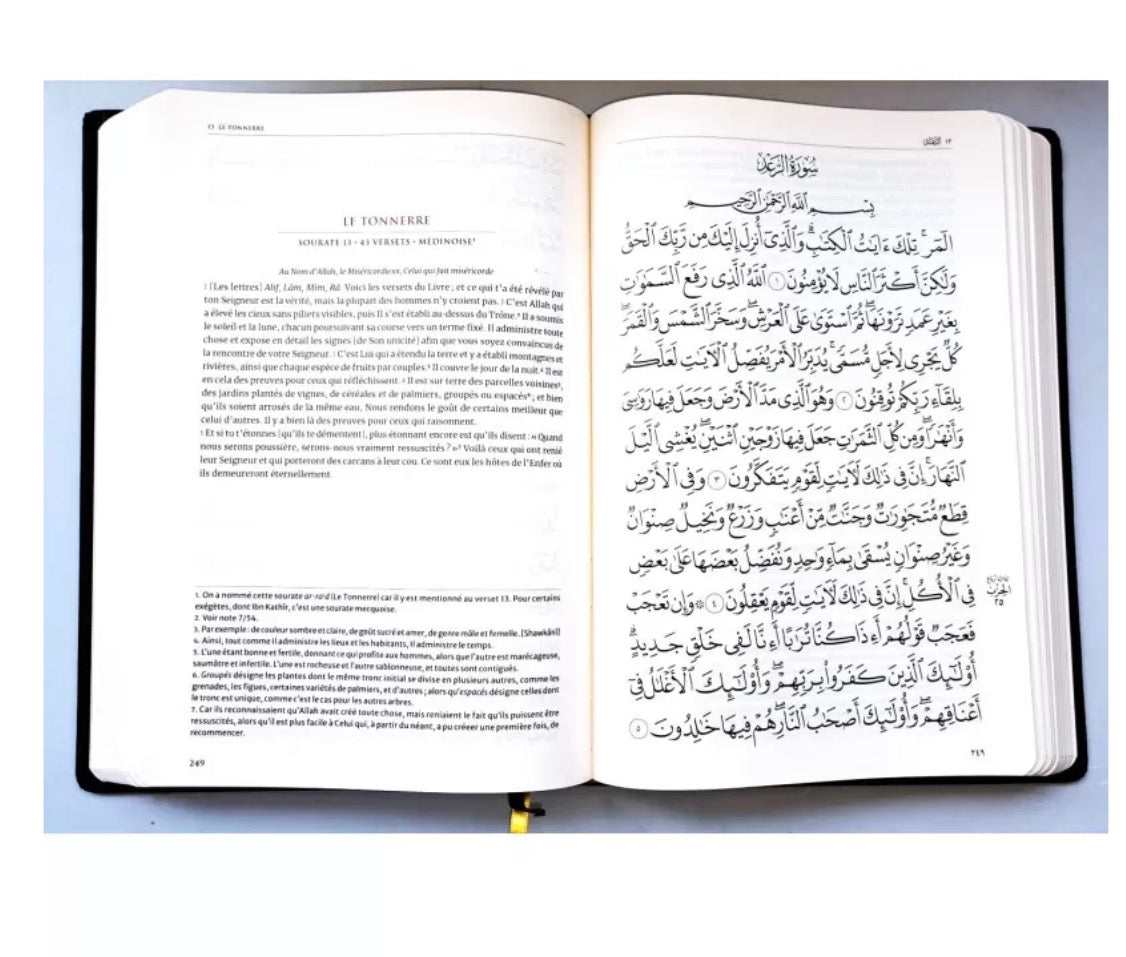 13 LE TONNERRE
LE TONNERRE
SOURATE 13 • 43 VERSETS • MÉDINOISE¹
Au Nom d'Allah, le Miséricordieux, Celui qui fait miséricorde
¹ [Les lettres] Alif, Lâm, Mim, Râ. Voici les versets du Livre ; et ce qui t'a été révélé par
ton Seigneur est la vérité, mais la plupart des hommes n'y croient pas. ² C'est Allah qui
a élevé les cieux sans piliers visibles, puis Il s'est établi au-dessus du Trône.² Il a soumis
le soleil et la lune, chacun poursuivant sa course vers un terme fixé. Il administre toute
chose et expose en détail les signes [de Son unicité] afin que vous soyez convaincus de
la rencontre de votre Seigneur. ³ C'est Lui qui a étendu la terre et y a établi montagnes et
rivières, ainsi que chaque espèce de fruits par couples.³ Il couvre le jour de la nuit.⁴ Il est
en cela des preuves pour ceux qui réfléchissent. ⁴ Il est sur terre des parcelles voisines⁵,
des jardins plantés de vignes, de céréales et de palmiers, groupés ou espacés⁶ ; et bien
qu'ils soient arrosés de la même eau, Nous rendons le goût de certains meilleur que
celui d'autres. Il y a bien là des preuves pour ceux qui raisonnent.
⁵ Et si tu t'étonnes [qu'ils te démentent], plus étonnant encore est qu'ils disent : « Quand
nous serons poussière, serons-nous vraiment ressuscités ? »⁷ Voilà ceux qui ont renié
leur Seigneur et qui porteront des carcans à leur cou. Ce sont eux les hôtes de l'Enfer où
ils demeureront éternellement.
1. On a nommé cette sourate ar-ra'd (Le Tonnerre) car il y est mentionné au verset 13. Pour certains
exégètes, dont Ibn Kathîr, c'est une sourate mecquoise.
2. Voir note 7/54.
3. Par exemple : de couleur sombre et claire, de goût sucré et amer, de genre mâle et femelle. [Shawkânî]
4. Ainsi, tout comme Il administre les lieux et les habitants, Il administre le temps.
5. L'une étant bonne et fertile, donnant ce qui profite aux hommes, alors que l'autre est marécageuse,
saumâtre et infertile. L'une est rocheuse et l'autre sablonneuse, et toutes sont contiguës.
6. Groupés désigne les plantes dont le même tronc initial se divise en plusieurs autres, comme les
grenades, les figues, certaines variétés de palmiers, et d'autres ; alors qu'espacés désigne celles dont
le tronc est unique, comme c'est le cas pour les autres arbres.
7. Car ils reconnaissaient qu'Allah avait créé toute chose, mais reniaient le fait qu'ils puissent être
ressuscités, alors qu'il est plus facile à Celui qui, à partir du néant, a pu créer une première fois, de
recommencer.
249
١٣ الرعد
سُورَةُ الرَّعْدِ
بِسْمِ اللَّهِ الرَّحْمَٰنِ الرَّحِيمِ
الٓمٓر ۚ تِلْكَ ءَايَٰتُ الْكِتَٰبِ ۗ وَالَّذِىٓ أُنزِلَ إِلَيْكَ مِن رَّبِّكَ الْحَقُّ
وَلَٰكِنَّ أَكْثَرَ النَّاسِ لَا يُؤْمِنُونَ ١ اللَّهُ الَّذِى رَفَعَ السَّمَٰوَٰتِ
بِغَيْرِ عَمَدٍ تَرَوْنَهَا ۖ ثُمَّ اسْتَوَىٰ عَلَى الْعَرْشِ ۖ وَسَخَّرَ الشَّمْسَ وَالْقَمَرَ ۖ
كُلٌّ يَجْرِى لِأَجَلٍ مُّسَمًّى ۚ يُدَبِّرُ الْأَمْرَ يُفَصِّلُ الْءَايَٰتِ لَعَلَّكُم
بِلِقَآءِ رَبِّكُمْ تُوقِنُونَ ٢ وَهُوَ الَّذِى مَدَّ الْأَرْضَ وَجَعَلَ فِيهَا رَوَٰسِىَ
وَأَنْهَٰرًا ۖ وَمِن كُلِّ الثَّمَرَٰتِ جَعَلَ فِيهَا زَوْجَيْنِ اثْنَيْنِ ۖ يُغْشِى الَّيْلَ
النَّهَارَ ۚ إِنَّ فِى ذَٰلِكَ لَءَايَٰتٍ لِّقَوْمٍ يَتَفَكَّرُونَ ٣ وَفِى الْأَرْضِ
قِطَعٌ مُّتَجَٰوِرَٰتٌ وَجَنَّٰتٌ مِّنْ أَعْنَٰبٍ وَزَرْعٌ وَنَخِيلٌ صِنْوَانٌ
وَغَيْرُ صِنْوَانٍ يُسْقَىٰ بِمَآءٍ وَٰحِدٍ وَنُفَضِّلُ بَعْضَهَا عَلَىٰ بَعْضٍ
فِى الْأُكُلِ ۚ إِنَّ فِى ذَٰلِكَ لَءَايَٰتٍ لِّقَوْمٍ يَعْقِلُونَ ٤ ۞ وَإِن تَعْجَبْ
الحزب
٢٥
فَعَجَبٌ قَوْلُهُمْ أَءِذَا كُنَّا تُرَٰبًا أَءِنَّا لَفِى خَلْقٍ جَدِيدٍ ۗ
أُو۟لَٰٓئِكَ الَّذِينَ كَفَرُوا۟ بِرَبِّهِمْ ۖ وَأُو۟لَٰٓئِكَ الْأَغْلَٰلُ فِىٓ
أَعْنَاقِهِمْ ۖ وَأُو۟لَٰٓئِكَ أَصْحَٰبُ النَّارِ ۖ هُمْ فِيهَا خَٰلِدُونَ ٥
٢٤٩